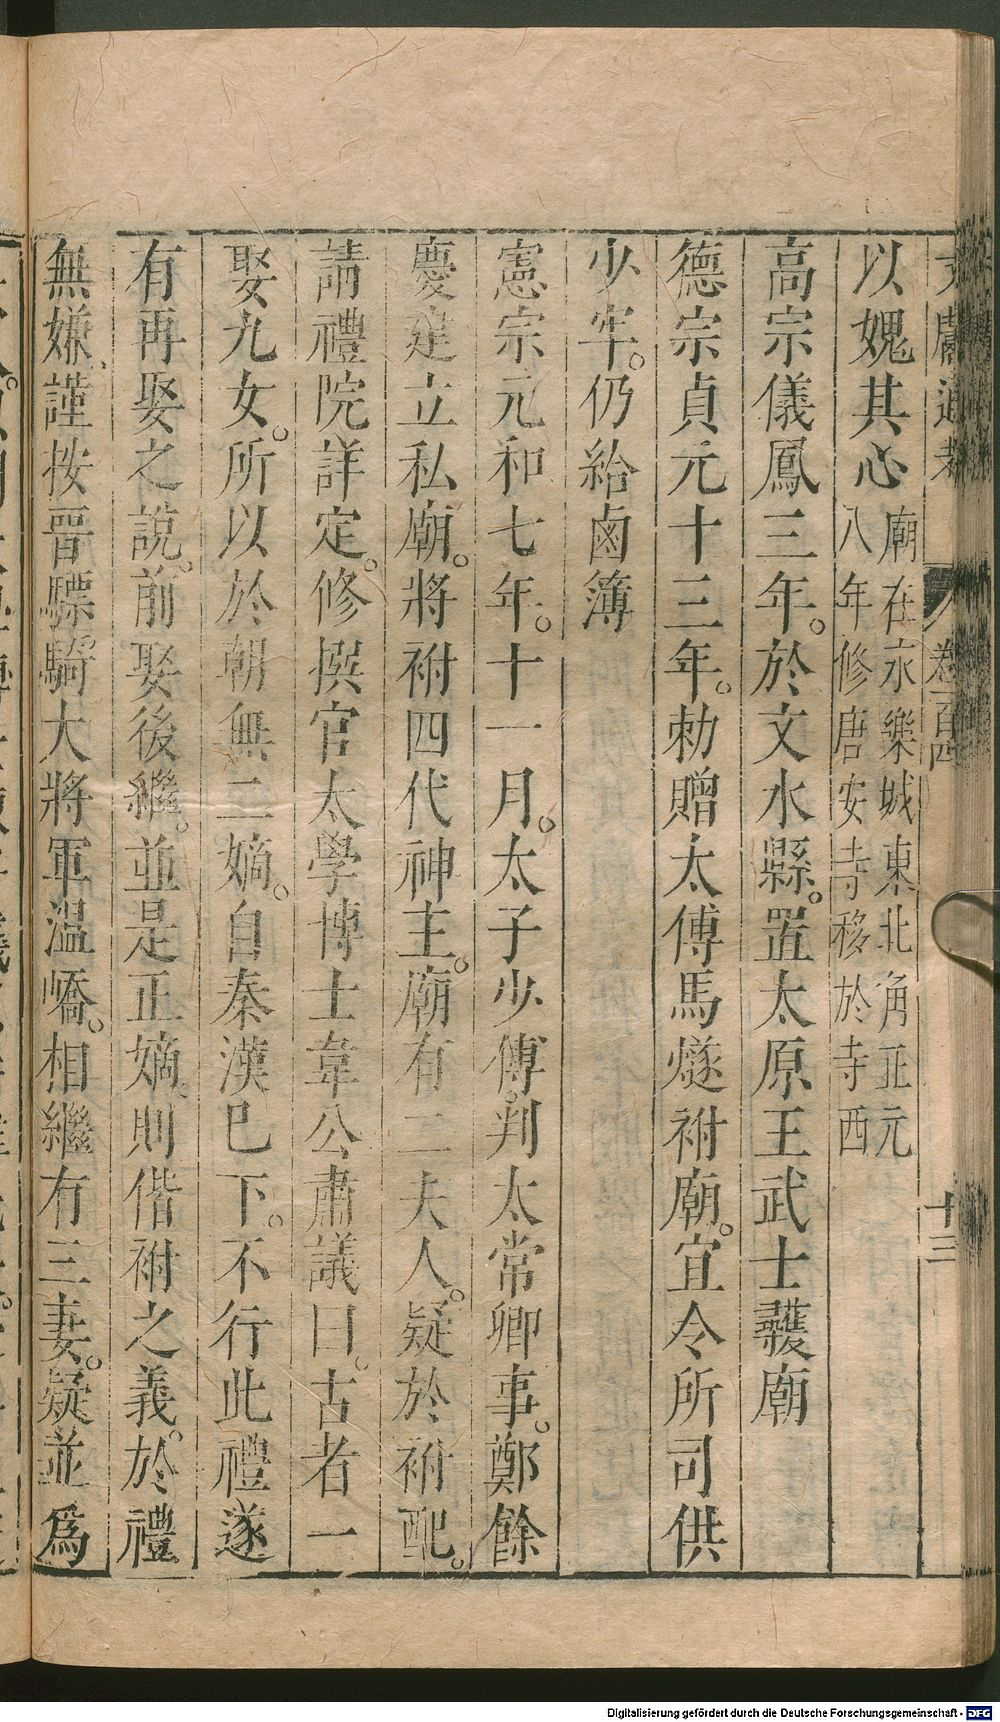 文獻通考 卷一百四 十三
以媿其心
廟在永樂城東北角正元
八年修唐安寺移於寺西
高宗儀鳳三年。於文水縣。置太原王武士彠廟
德宗貞元十三年。勅贈太傅馬燧祔廟。宜令所司供
少牢。仍給鹵簿
憲宗元和七年。十一月。太子少傅。判太常卿事。鄭餘
慶建立私廟。將祔四代神主。廟有二夫人。疑於祔配。
請禮院詳定。修撰官太學博士韋公肅議曰。古者一
娶九女。所以於朝無二嫡。自秦漢已下。不行此禮遂
有再娶之說。前娶後繼。並是正嫡。則偕祔之義。於禮
無嫌、謹按晉驃騎大將軍溫嶠。相繼有三妻。疑並爲
Digitalisierung gefördert durch die Deutsche Forschungsgemeinschaft - DFG